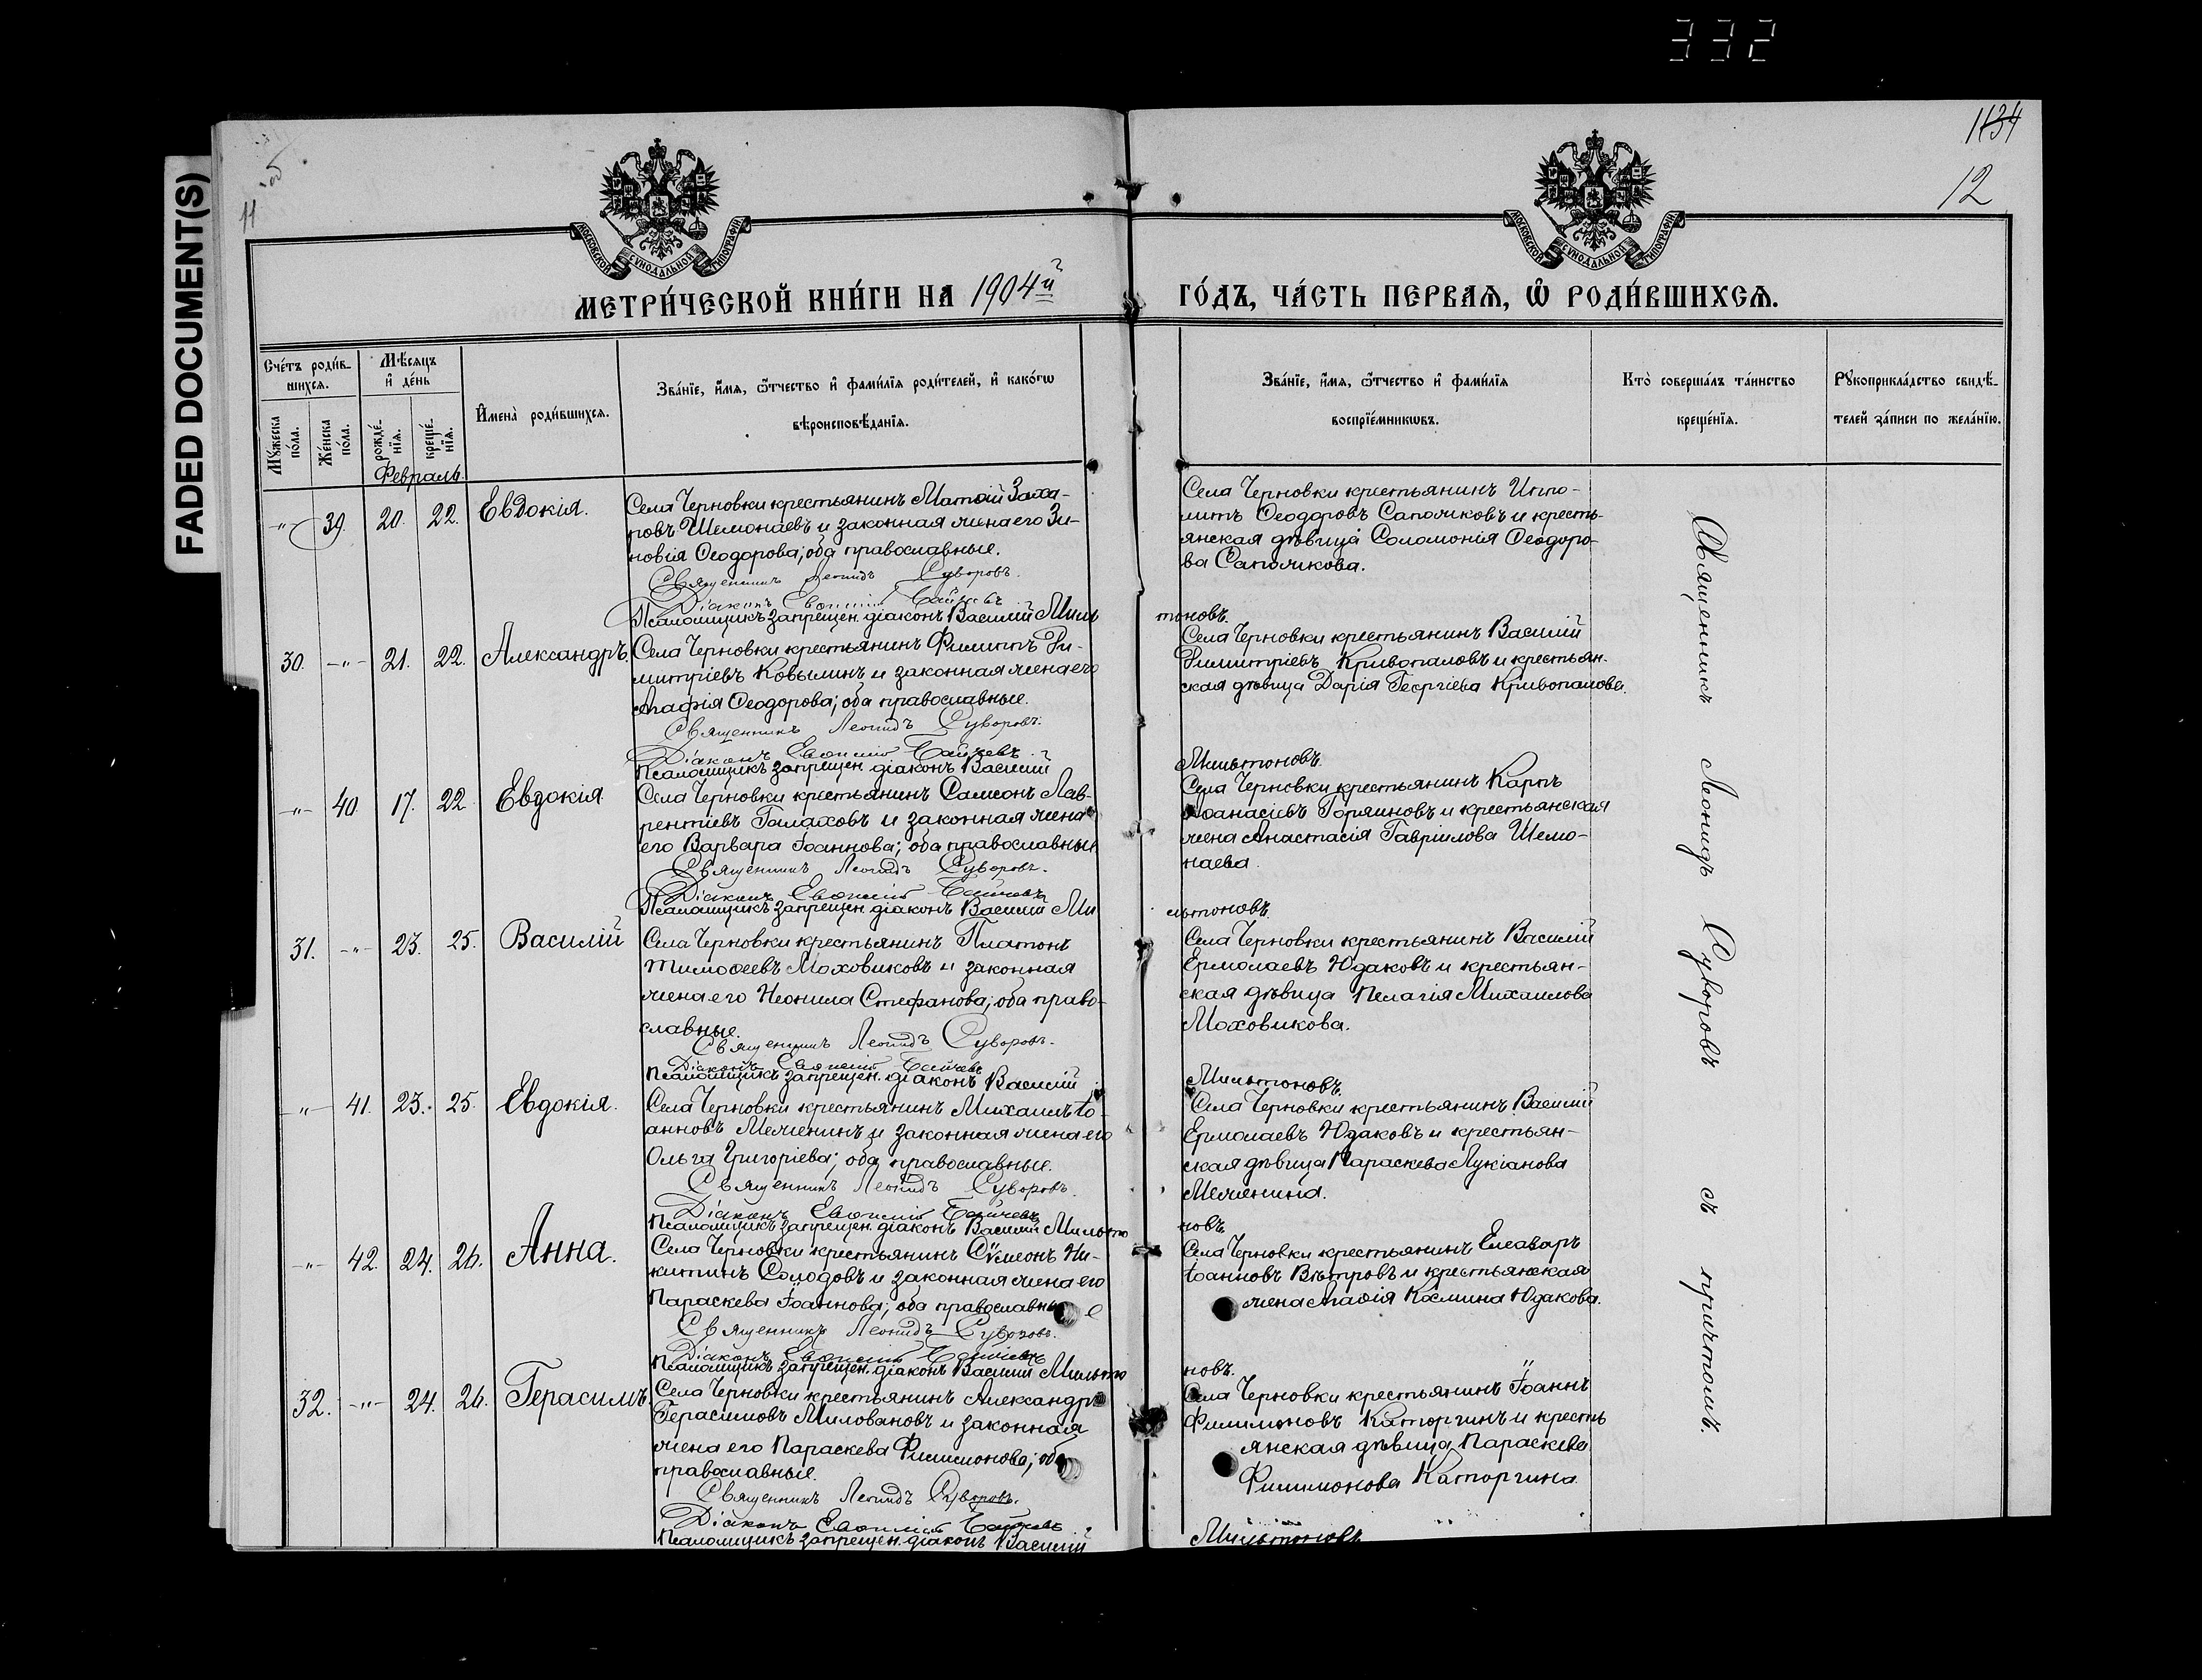 332
FADED DOCUMENT(S)
1134
12
11 об
МОСКОВСКОЙ СУНОДАЛЬНОЙ ТИПОГРАФІИ
МОСКОВСКОЙ СУНОДАЛЬНОЙ ТИПОГРАФІИ
МЕТРИ́ЧЕСКОЙ КНИ́ГИ НА 1904й ГО́ДЪ, ЧА́СТЬ ПЕРВАѦ, Ѡ҆ РОДИ́ВШИХСѦ.
Сче́тъ роди́в-
шихсѧ.
Мꙋ́жеска
по́ла.
Же́нска
по́ла.
Мѣ́сѧцъ
и҆ де́нь
рожде́-
нїѧ.
креще́-
нїѧ.
И҆мена̀ роди́вшихсѧ.
Зва́нїе, и҆́мѧ, ѻ҆́тчество и҆ фами́лїѧ роди́телей, и҆ како́гѡ
вѣроисповѣ́данїѧ.
Зва́нїе, и҆́мѧ, ѻ҆́тчество и҆ фами́лїѧ
воспрїе́мникѡвъ.
Кто̀ соверша́лъ та́инство
креще́нїѧ.
Рꙋкоприкла́дство свидѣ́-
телей за́писи по жела́нїю.
Февраль
-"- 39. 20. 22. Евдокія.
Села Черновки крестьянинъ Матѳій Заха-
ровъ Шемонаевъ и законная жена его Зи-
новія Ѳеодорова; оба православные.
Священникъ Леонидъ Суворовъ.
Діаконъ Евѳимій
Псаломщикъ запрещен. діаконъ Василій Мильтоновъ.
Села Черновки крестьянинъ Иппо-
литъ Ѳеодоровъ Сапожковъ и кресть-
янская дѣвица Соломонія Ѳеодоро-
ва Сапожкова.
30. -"- 21. 22. Александръ.
Села Черновки крестьянинъ Филиппъ Ди-
митріевъ Ковылинъ и законная жена его
Агафія Ѳеодорова; оба православные.
Священникъ Леонидъ Суворовъ.
Діаконъ Евѳимій
Псаломщикъ запрещен. діаконъ Василій Мильтоновъ.
Села Черновки крестьянинъ Василій
Димитріевъ Кривопаловъ и крестьян-
ская дѣвица Дарія Георгіева Кривопалова.
-"- 40. 17. 22. Евдокія.
Села Черновки крестьянинъ Самсонъ Лав-
рентіевъ Галаховъ и законная жена
его Варвара Іоаннова; оба православные
Священникъ Леонидъ Суворовъ.
Діаконъ Евѳимій
Псаломщикъ запрещен. діаконъ Василій Мильтоновъ.
Села Черновки крестьянинъ Карпъ
Аѳанасіевъ Горяиновъ и крестьянская
жена Анастасія Гавріилова Шемо-
наева.
31. -"- 23. 25. Василій
Села Черновки крестьянинъ Платонъ
Тимоѳеевъ Моховиковъ и законная
жена его Неонила Стефанова; оба право-
славные.
Священникъ Леонидъ Суворовъ.
Діаконъ Евѳимій
Псаломщикъ запрещен. діаконъ Василій Мильтоновъ.
Села Черновки крестьянинъ Василій
Ермолаевъ Юдаковъ и крестьян-
ская дѣвица Пелагія Михаилова
Моховикова.
-"- 41. 23. 25. Евдокія.
Села Черновки крестьянинъ Михаилъ Іо-
анновъ Меженинъ и законная жена его
Ольга Григоріева; оба православные.
Священникъ Леонидъ Суворовъ.
Діаконъ Евѳимій
Псаломщикъ запрещен. діаконъ Василій Мильтоновъ.
Села Черновки крестьянинъ Василій
Ермолаевъ Юдаковъ и крестьян-
ская дѣвица Параскева Лукіанова
Меженина.
-"- 42. 24. 26. Анна.
Села Черновки крестьянинъ Сѵмеонъ Ни-
китинъ Солодовъ и законная жена его
Параскева Іоаннова; оба православные
Священникъ Леонидъ Суворовъ.
Діаконъ Евѳимій
Псаломщикъ запрещен. діаконъ Василій Мильтоновъ.
Села Черновки крестьянинъ Елеазаръ
Іоанновъ Вѣтровъ и крестьянская
жена Агафія Космина Юдакова.
32. -"- 24. 26. Герасимъ.
Села Черновки крестьянинъ Александръ
Герасимовъ Миловановъ и законная
жена его Параскева Филимонова; оба
православные.
Священникъ Леонидъ Суворовъ.
Діаконъ Евѳимій
Псаломщикъ запрещен. діаконъ Василій Мильтоновъ
Села Черновки крестьянинъ Іоаннъ
Филимоновъ Каторгинъ и кресть
янская дѣвица Параскева
Филимонова Каторгина.
Священникъ Леонидъ Суворовъ съ причтомъ.